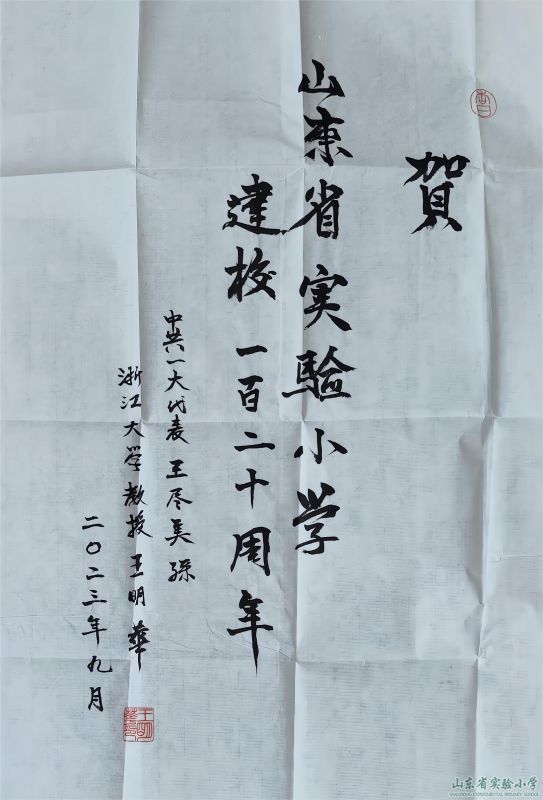 賀
山东省实验小学
建校一百二十周年
中共一大代表王尽美孫
浙江大学教授王明華
二〇二三年九月
山东省实验小学
SHANDONG EXPERIMENTAL PRIMARY SCHOOL